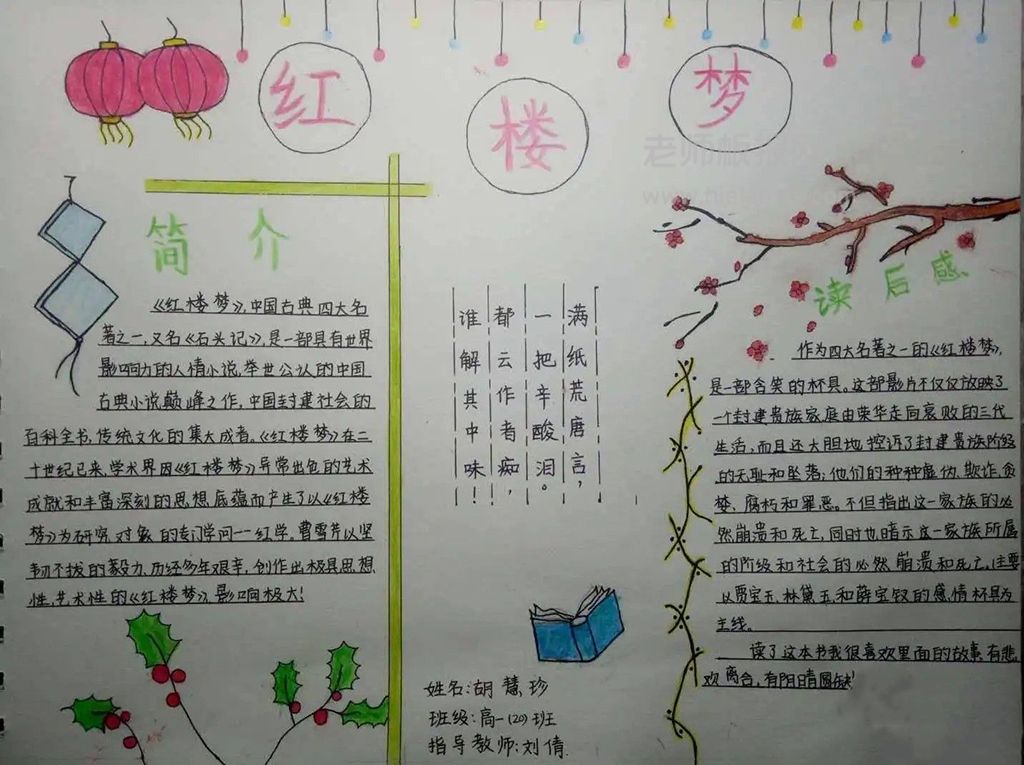 红
楼
梦
老师板报
简介
《红楼梦》,中国古典四大名
著之一,又名《石头记》,是一部具有世界
影响力的人情小说,举世公认的中国
古典小说巅峰之作,中国封建社会的
百科全书,传统文化的集大成者。《红楼梦》在二
十世纪已来,学术界因《红楼梦》异常出色的艺术
成就和丰富深刻的思想底蕴而产生了以《红楼
梦》为研究对象的专门学问一红学。曹雪芹以坚
韧不拔的毅力,历经多年艰辛,创作出极具思想
性,艺术性的《红楼梦》,影响极大!
满纸荒唐言,
一把辛酸泪。
都云作者痴,
谁解其中味!
姓名:胡慧珍
班级:高一(20)班
指导教师:刘倩
读后感
作为四大名著之一的《红楼梦》,
是一部含笑的杯具。这部影片不仅仅放映了
一个封建贵族家庭由荣华走向衰败的三代
生活,而且还大胆地控诉了封建贵族阶级
的无耻和坠落;他们的种种虚伪、欺诈、贪
婪、腐朽和罪恶。不但指出这一家族的必
然崩溃和死亡,同时也暗示这一家族所属
的阶级和社会的必然崩溃和死亡,主要
以贾宝玉、林黛玉、和薛宝钗的感情杯具为
主线。
读了这本书我很喜欢里面的故事,有悲
欢离合,有阴晴圆缺!